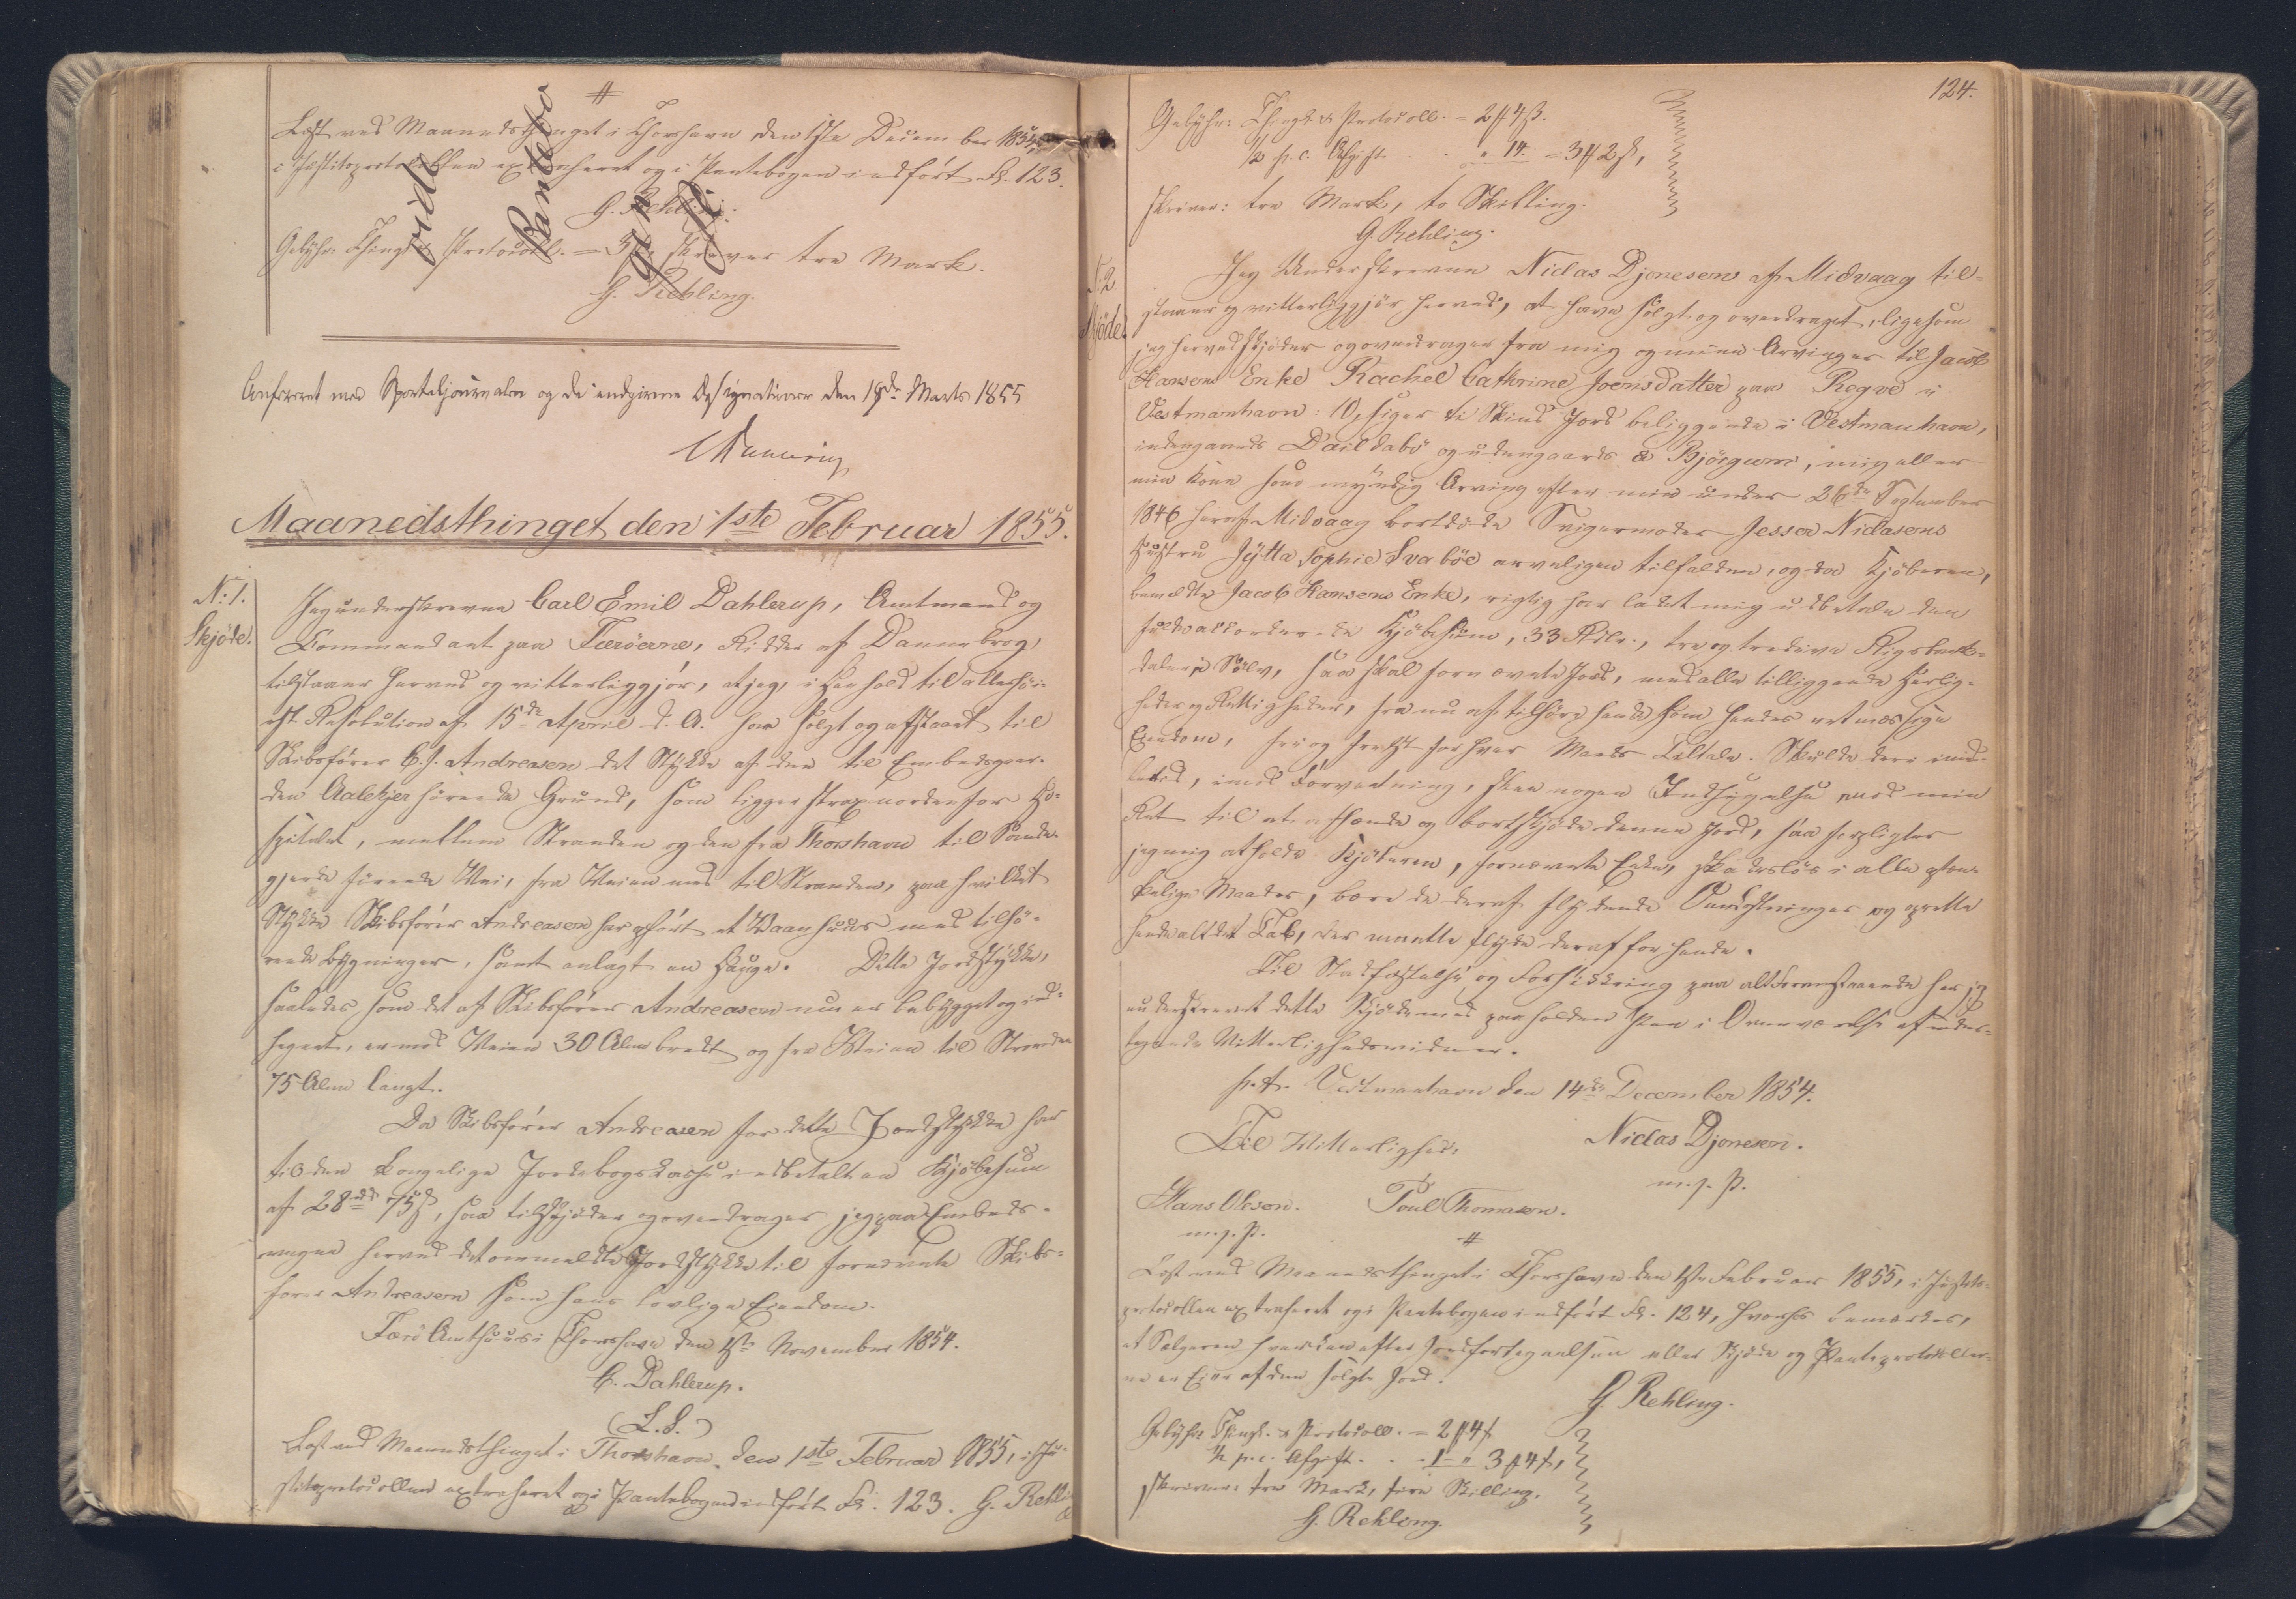 #
Læst ved Maanedsthinget i Thorshavn den 1ste December 1854,
i Justitsprotokollen extraheret og i Pantebogen indført Fol. 123.
G. Rehling.
Gebyhr: Thingl. & Protocoll. = 3 skriver tre Mark.
G. Rehling.
vide
Pantebog
Confereret med Sporteljournalen og de indgivne Designationer den 18de Marts 1855
Maanedsthinget den 1ste Februar 1855.
N: 1.
Skjöde.
Jeg underskrevne Carl Emil Dahlerup, Amtmand og
Commandant paa Færöerne, Ridder af Dannebrog,
tilstaaer herved og vitterliggjør, at jeg, i Henhold til allerhöi-
est Resolution af 15de April d. A. har solgt og afstaaet til
Skibsfører C. J. Andreasen det Stykke af den til Embedsgaar-
den Aalekjer hørende Grund, som ligger strax nordenfor Ho-
spitalet, mellem Stranden og den fra Thorshavn til Sande-
gjerde førende Vei, fra Veien ned til Stranden, paa hvilket
Stykke Skibsfører Andreasen har opført et Vaanhuus med tilhö-
rende Bygninger, samt anlagt en Hauge. Dette Jordstykke,
saaledes som det af Skibsfører Andreasen nu er bebygget og ind-
hegnet, er med Veien 30 Alen bredt og fra Veien til Stranden
75 Alen langt.
Da Skibsfører Andreasen for dette Jordstykke har
til den Kongelige Jordebogskasse indbetalt en Kjöbesum
af 28 rd 75 s, saa tilskjøder og overdrager jeg paa Embeds-
vegne herved det ommeldte Jordstykke til fornævnte Skibs-
fører Andreasen som hans lovlige Eiendom.
Færö Amthuus i Thorshavn den 1ste November 1854.
C. Dahlerup.
(L.S.)
Læst ved Maanedsthinget i Thorshavn, den 1ste Februar 1855, i Ju-
stitsprotocollen extraheret og i Pantebogen indført Fol. 123. G. Rehling
124.
Gebyhr: Thingl. & Protocoll. = 2 # 4 ß.
½ p. c. Afgift . . " 14. = 3 # 2 ß,
skriver: tre Mark, to Skilling.
G. Rehling.
N: 2
Skjöde.
Jeg Underskrevne Niclas Djonesen af Midvaag til-
staaer og vitterliggjör herved, at have solgt og overdraget, ligesom
jeg herved skjöder og overdrager fra mig og mine Arvinger til Jacob
Hansens Enke Rachel Cathrine Joensdatter paa Regve i
Vestmanhavn: 10, siger ti Skind Jord beliggende i Vestmanhavn,
indengaards Daildabö og udengaards á Bjórgumi, mig eller
min Kone som myndig Arving efter min under 26de September
1846 heraf Midvaag bortdöde Svigermoder Jessea Niclasens
Hustru Jytta Sophie Svaböe arveligen tilfalden, og da Kjöberen,
bemeldte Jacob Hansens Enke, rigtig har ladet mig udbetale den
fuldt akkorderede Kjöbesum, 33 Rdlr., tre og tredive Rigsbank-
daler i Sölv, saa skal fornævnte Jord, med alle tilliggende Herlig-
heder og Rettigheder, fra nu af tilhöre hende som hendes retmæssige
Eiendom, frie og frelst for hver Mands Tiltale. Skulde der imid-
lertid, imod Forventning, skee nogen Indsigelse mod min
Ret til at afhænde og bortskjöde denne Jord, saa forpligter
jeg mig at holde Kjöberen, fornævnte Enke, skadeslös i alle optæn-
kelige Maader, bære de deraf flydende Omkostninger og oprette
hende alt det Tab, der maatte flyde deraf for hende.
Til Stadfæstelse og Forsikkring paa alt Foranstaaende har jeg
underskrevet dette Skjöde med paaholden Pen i Overværelse af under-
tegnede Vitterlighedsvidner.
p. t. Vestmanhavn den 14de December 1854.
Til Vitterlighed: Niclas Djonesen.
m. f. P.
Hans Olesen. Poul Thomasen.
m. f. P.
#
Læst ved Maanedsthinget i Thorshavn den 1ste Februar 1855, i Justits-
protocollen extraheret og i Pantebogen indfört Fol. 124, hvorhos bemærkes,
at Sælgeren hverken efter Jordfortegnelsen eller Skjöde og Panteprotocoller-
ne er Eier af den solgte Jord.
G. Rehling.
Gebyhr Thingl. & Protocoll. = 2 # 4 ß
½ p. c. Afgift . . - 1 - " 3 # 4 ß,
skriver: tre Mark, fire Skilling.
G. Rehling.